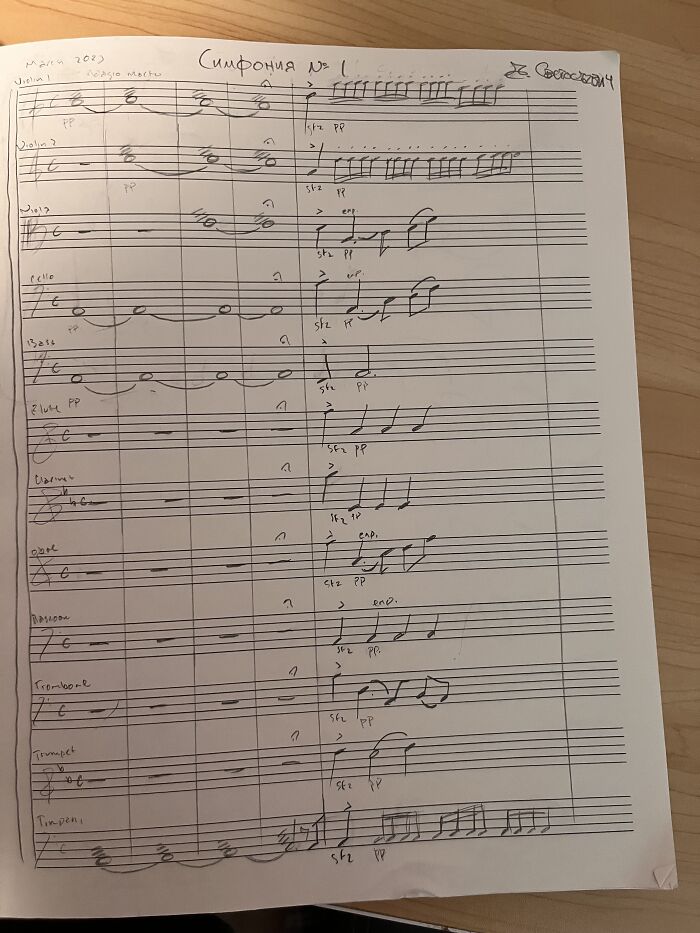 March 2023 Симфония № 1
Violin 1 Adagio Morto
pp sfz pp
Violin 2
pp sfz pp
Viola
esp.
sfz pp
Cello
esp.
pp sfz pp
Bass
pp sfz pp
Flute
sfz pp
Clarinet
sfz pp
Oboe
esp.
sfz pp
Bassoon
esp.
sfz pp.
Trombone
sfz pp
Trumpet
sfz pp
Timpani
sfz pp